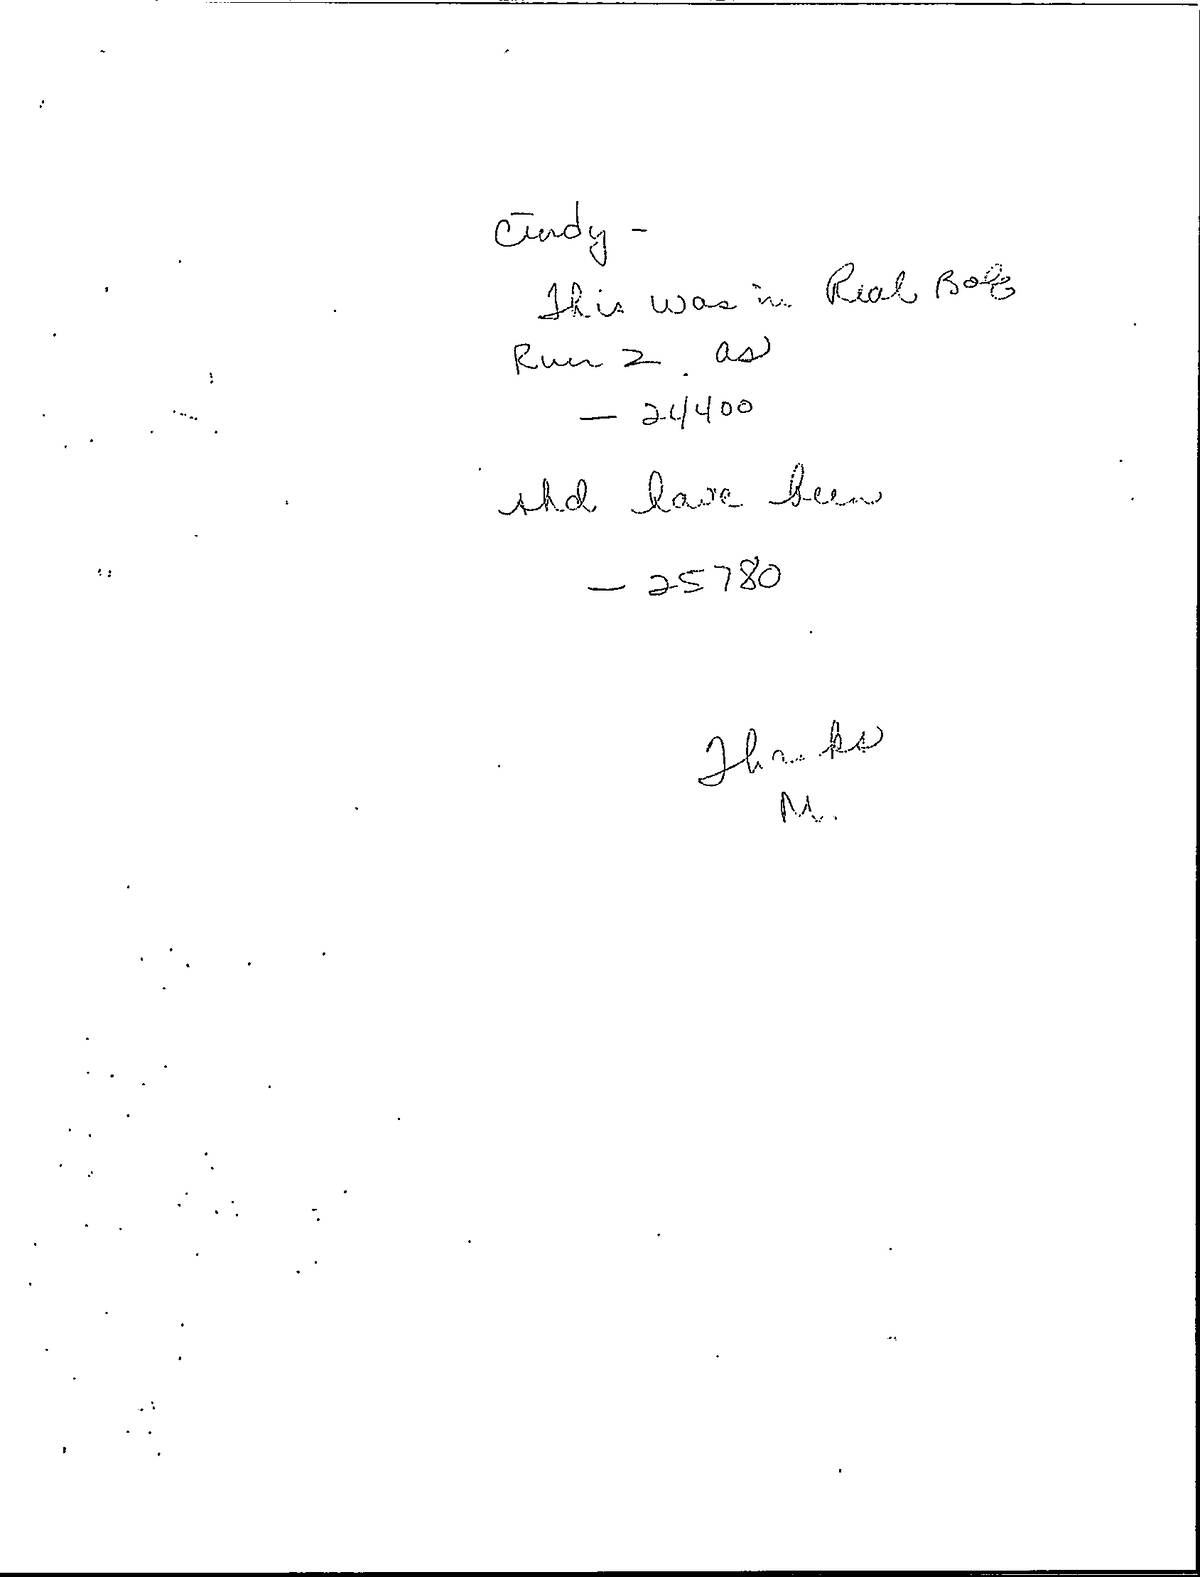 Cindy -
This was in Real
Run 2 as
— 24400
shd have been
— 25780
Thanks
M.